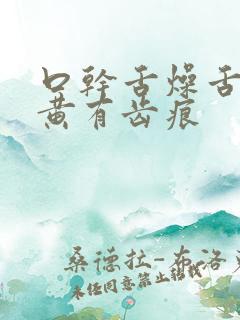 口幹舌燥舌
黄有齿痕
桑德拉-布洛克
未经同意禁止转载